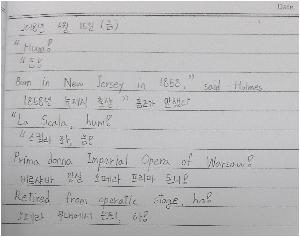 Date
2018년 6월 15일 (금)
"Hum!
"흠!
Born in New Jersey in 1858," said Holmes
1858년 뉴저지 출생" 홈즈가 말했다
"La Scala, hum!
"스칼라 좌, 흠!
Prima donna Imperial Opera of Warsaw!
바르샤바 왕실 오페라 프리마 돈나!
Retired from operatic stage, ha!
오페라 무대에서 은퇴, 하!